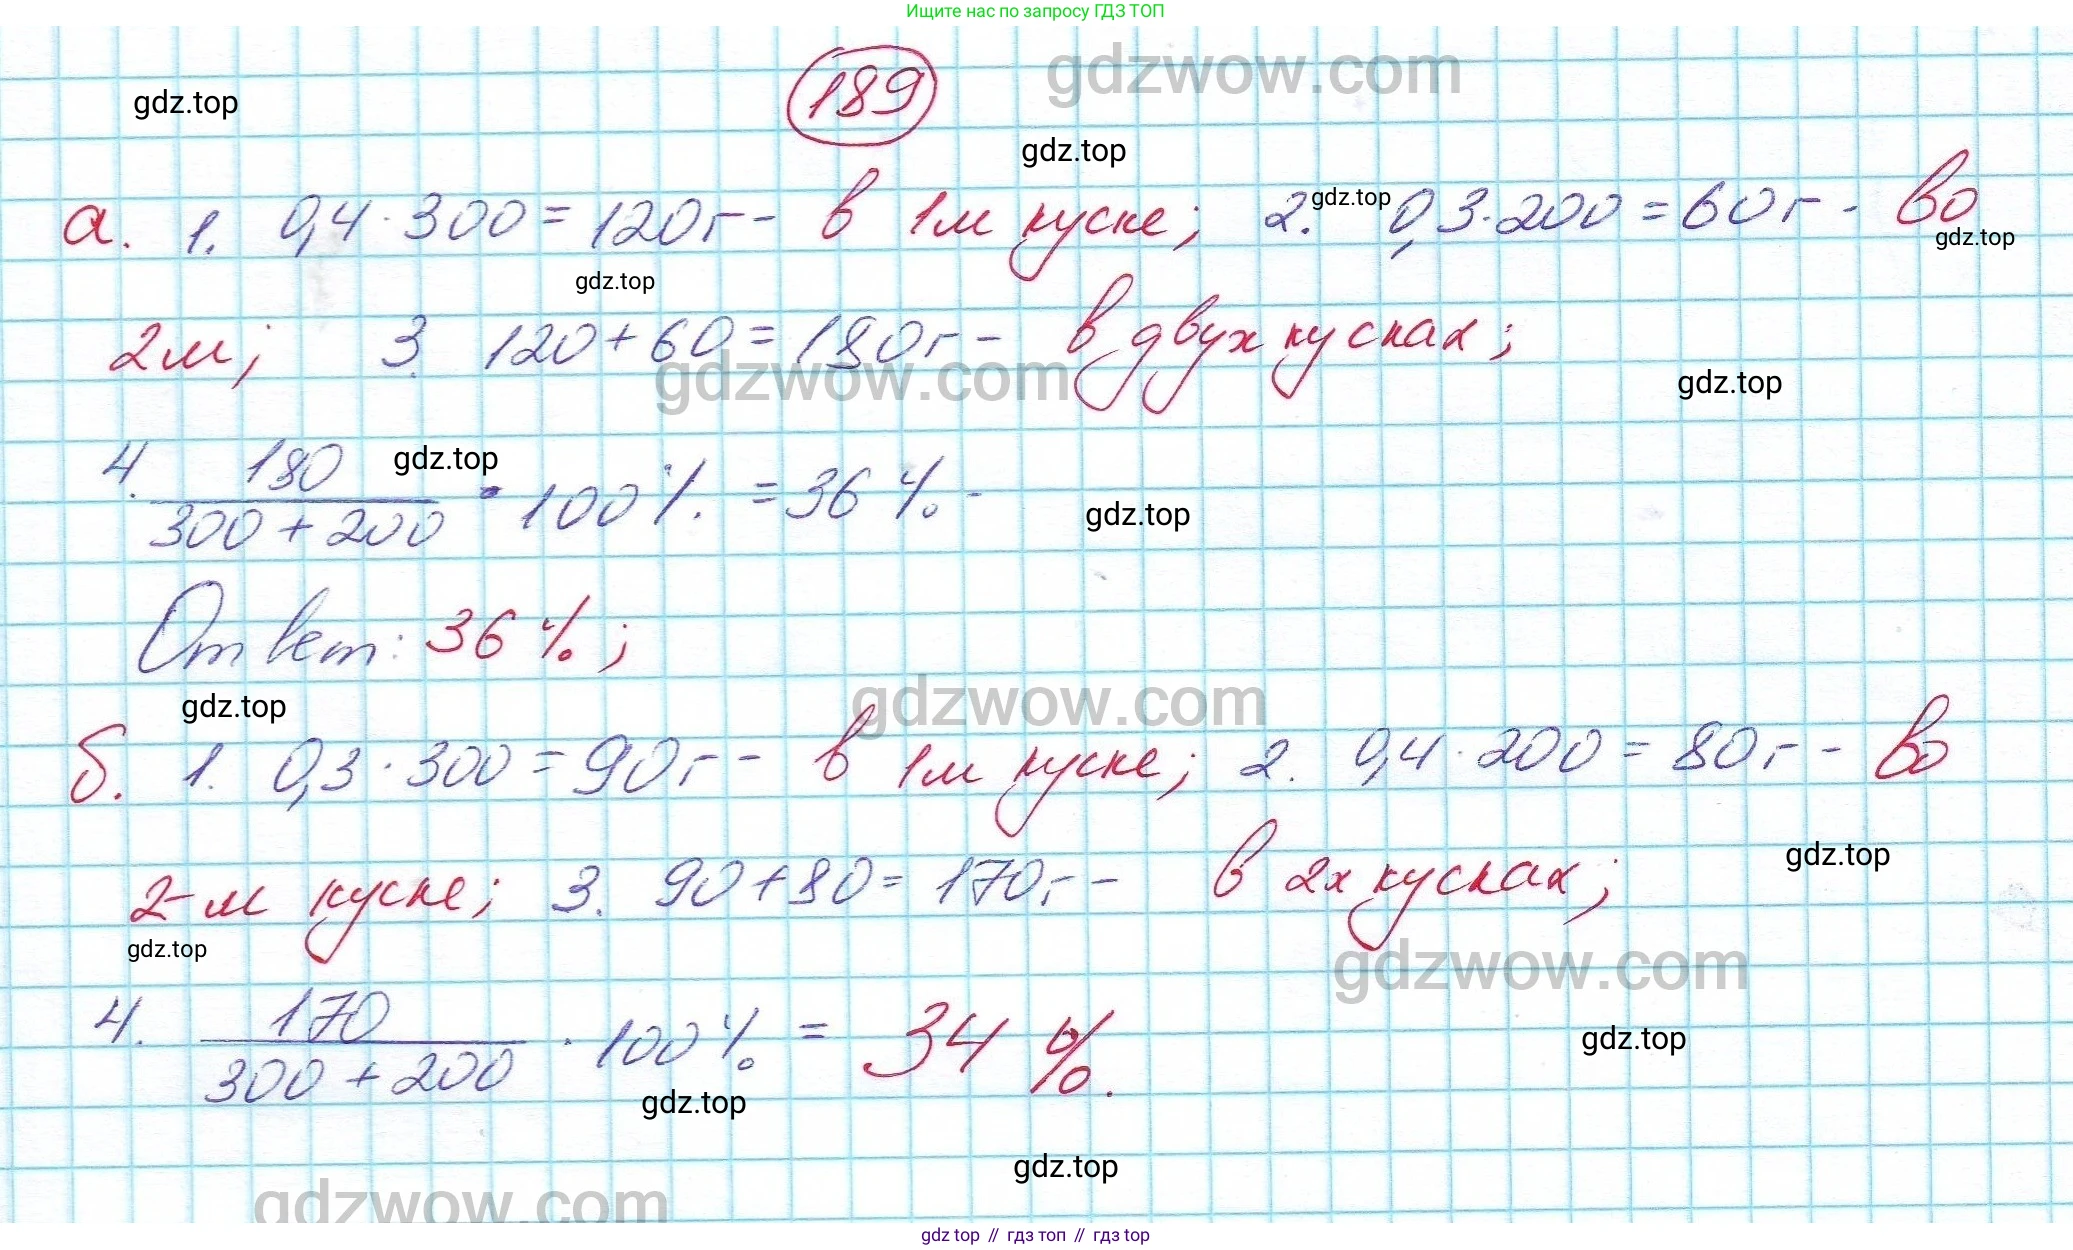 Ищите нас по запросу ГДЗ ТОП
189
gdzwow.com
gdz.top
gdz.top
а. 1. 0,4 · 300 = 120г - в 1м куске; 2. 0,3 · 200 = 60г - во
gdz.top
gdz.top
gdz.top
2м; 3. 120 + 60 = 180г - в двух кусках;
gdzwow.com
gdz.top
4. 180 / 300 + 200 · 100% = 36% -
gdz.top
gdz.top
Ответ: 36%;
gdz.top
gdzwow.com
б. 1. 0,3 · 300 = 90г - в 1м куске; 2. 0,4 · 200 = 80г - во
gdz.top
2-м куске; 3. 90 + 80 = 170г - в 2х кусках;
gdz.top
gdzwow.com
4. 170 / 300 + 200 · 100% = 34%.
gdz.top
gdz.top
gdz.top
gdzwow.com
gdz.top // гдз топ // gdz.top